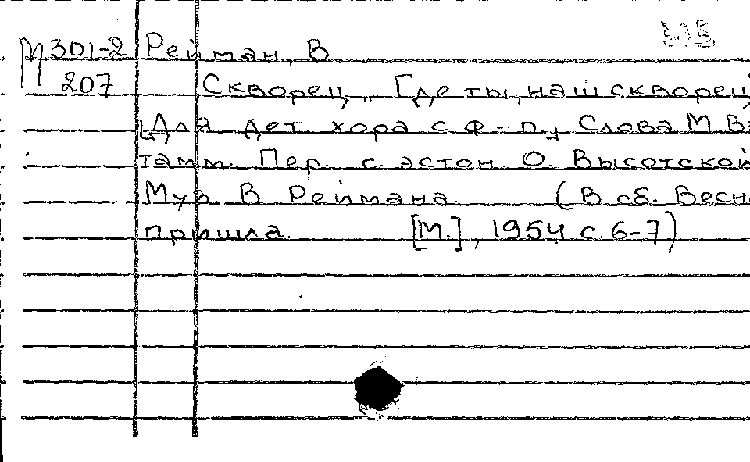 М301-2 Рейман, В
207 Скворец. [Где ты, наш скворец
Для дет. хора с ф-п., Слова М Вэ
тамм. Пер. с эстон О. Высотской
Муз В Реймана (В сб. Весн
пришла. [М.], 1954 с 6-7)